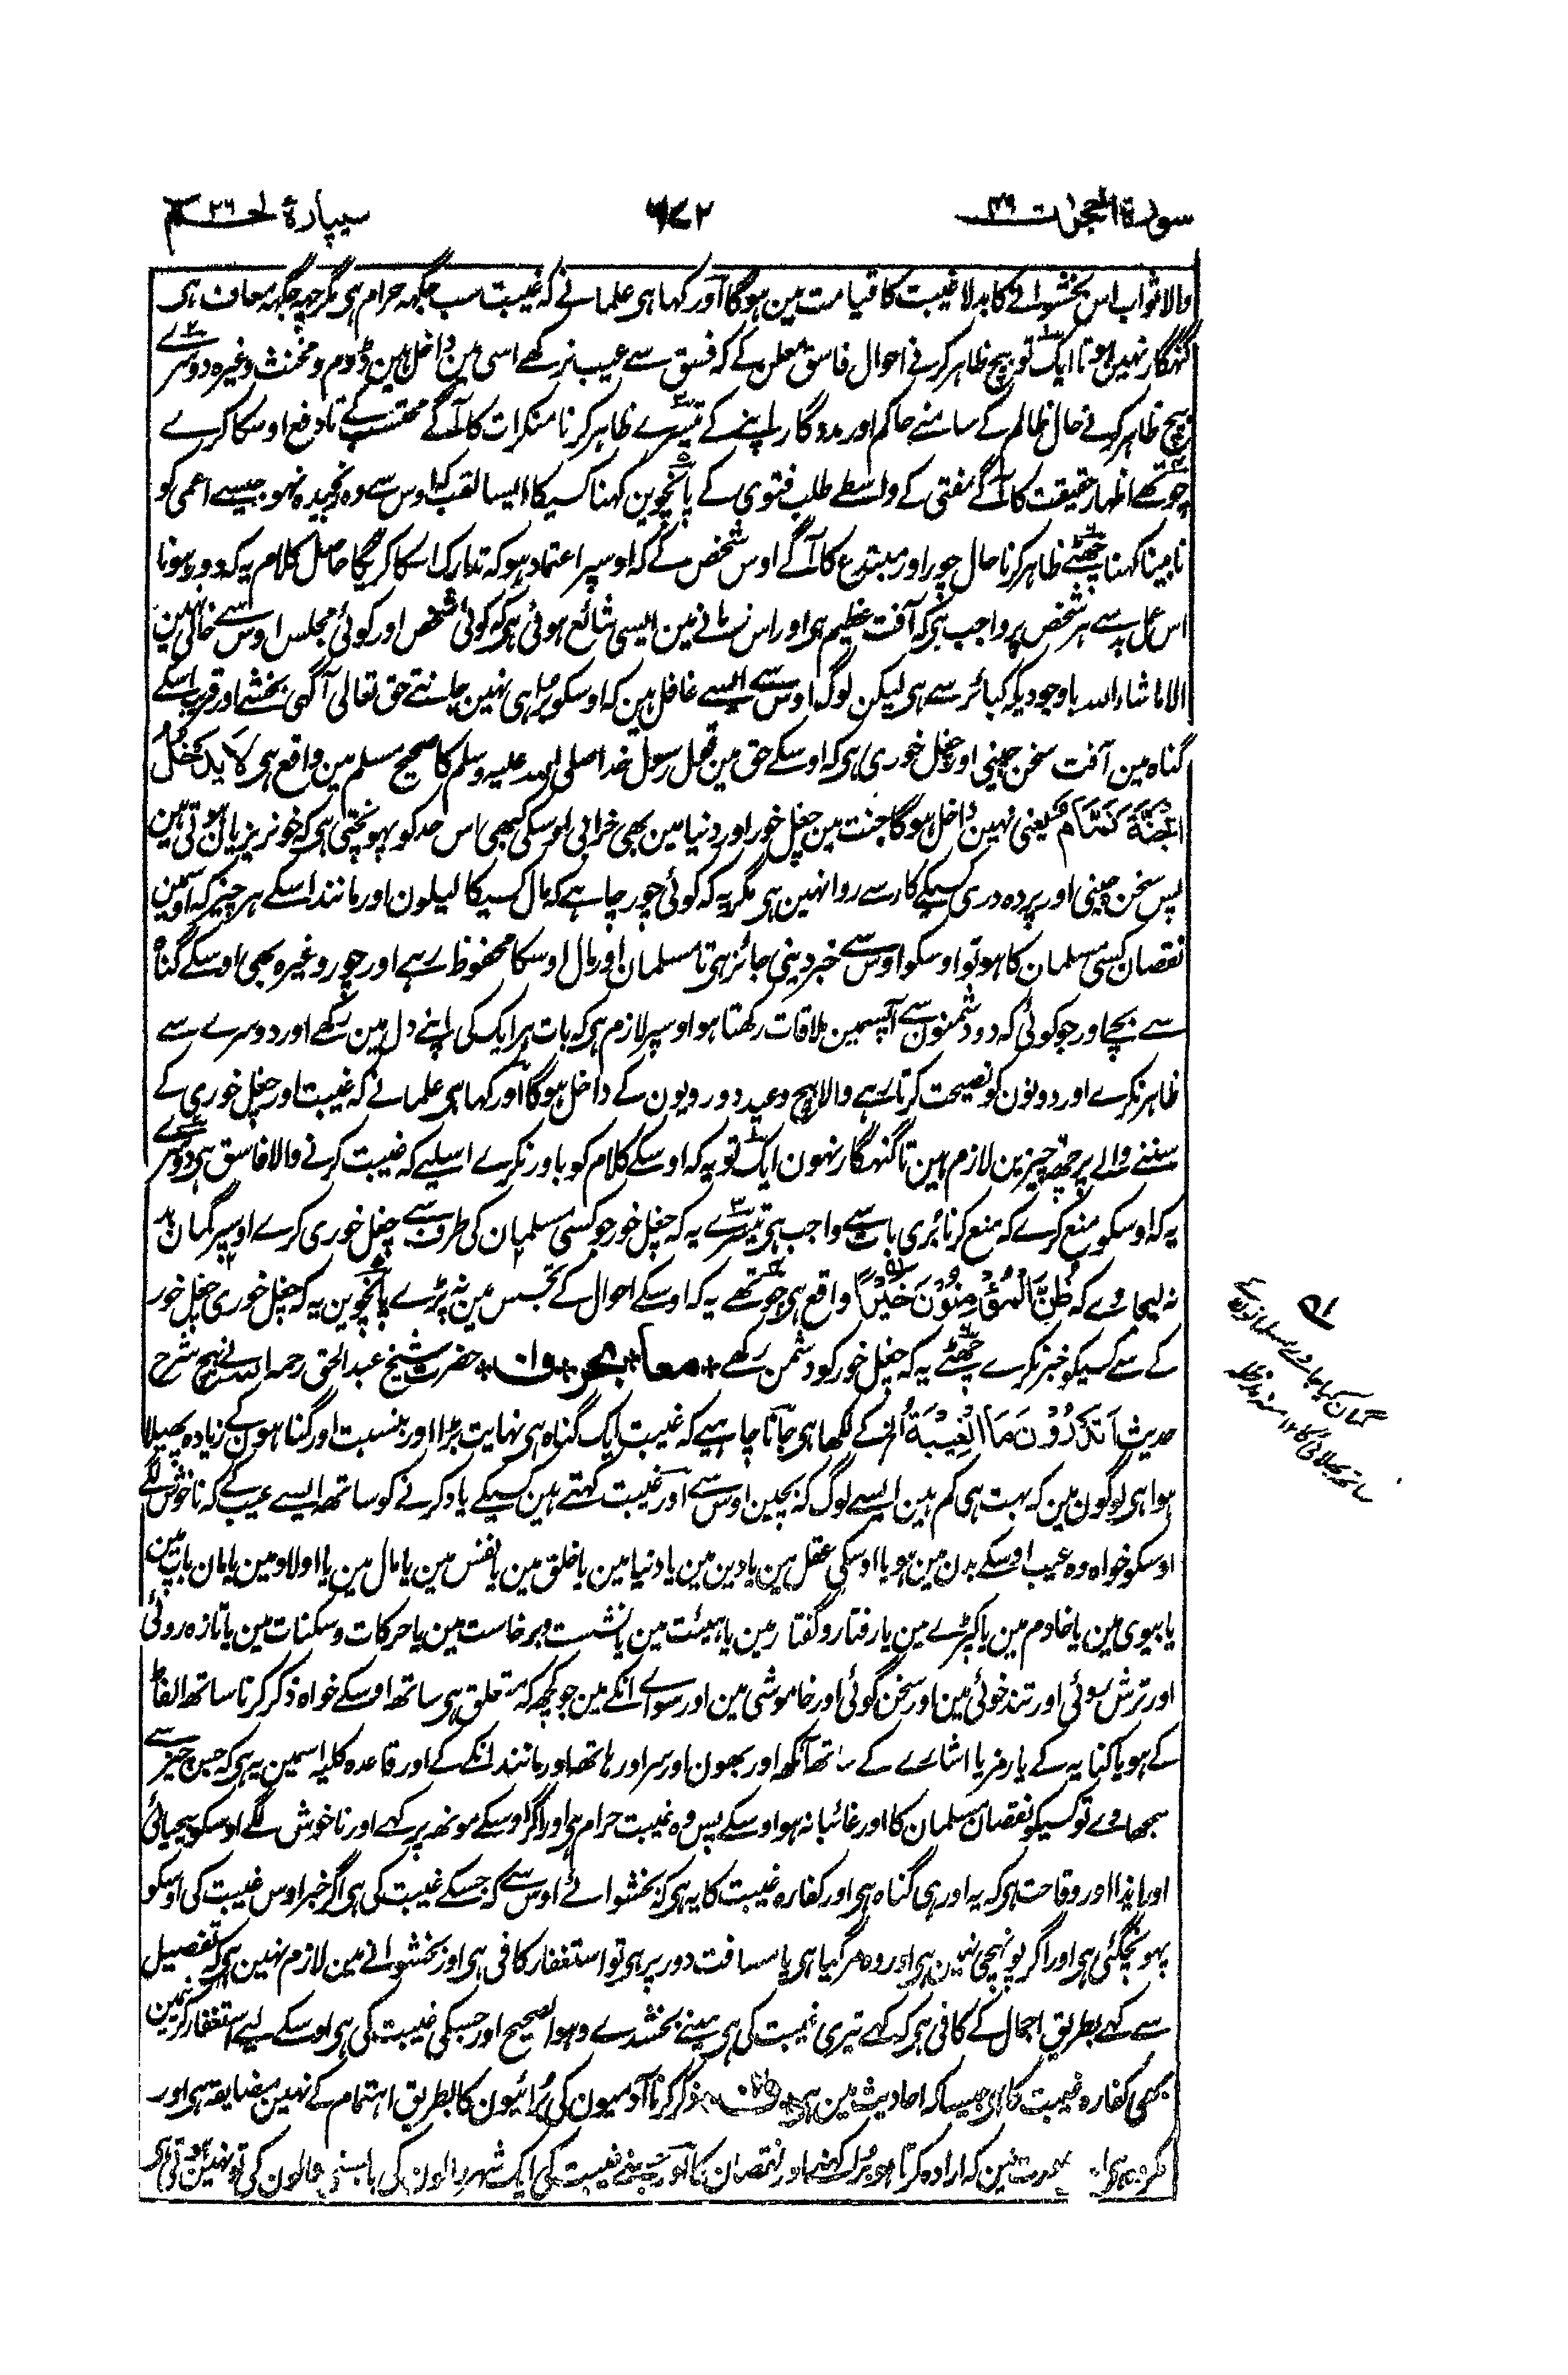 سورة الحجرات ۴۹
۶۷۲
سیپارۂ حٰم ۲۶
والا ثواب اس بخشوانے کا بدلا غیبت کا قیامت مین ہوگا اور کہا ہی علمانے کہ غیبت سب جگہہ حرام ہی مگر چھہ جگہہ معاف ہی
گنہگار نہین ہوتا ایک تو بیچ ظاہر کرنے احوال فاسق معلن کے کہ فسق سے عیب نرکھے اسی مین داخل ہین ڈوم و مخنث وغیرہ دوسرے
بیچ ظاہر کرنے حال ظالم کے سامنے حاکم اور مددگار اپنے کے تیسرے ظاہر کرنا منکرات کا آگے محتسب کے تا دفع اوسکا کرے
چوتھے اظہار حقیقت کا آگے مفتی کے واسطے طلب فتوی کے پانچوین کہنا کسیکا ایسا لقب کہ اوس سے وہ رنجیدہ نہو جیسے اعمی کو
نابینا کہنا چھٹے ظاہر کرنا حال چور اور مبتدع کا آگے اوس شخص کے کہ اوسپر اعتماد ہو کہ تدارک اسکا کریگا حاصل کلام یہ کہ دور ہونا
اس عمل سے ہر شخص پر واجب ہی کہ آفت عظیم ہی اور اس زمانے مین ایسی شائع ہوئی ہی کہ کوئی شخص اور کوئی مجلس اوس سے خالی نہین
الا ماشاء اللہ باوجودیکہ کبائر سے ہی لیکن لوگ اوس سے ایسے غافل ہین کہ اوسکو برا ہی نہین جانتے حق تعالی آگہی بخشے اور قریب اسکے
گناہ مین آفت سخن چینی اور چغل خوری ہی کہ اوسکے حق مین قول رسول خدا صلی اللہ علیہ وسلم کا صحیح مسلم مین واقع ہی لَا یَدْخُلُ
الْجَنَّةَ نَمَّام یعنی نہین داخل ہوگا جنت مین چغل خور اور دنیا مین بھی خرابی اوسکی کبھی اس حد کو پہونچتی ہی کہ خونریزیان ہوتی ہین
پس سخن چینی اور پردہ دری کسیکے کار سے روا نہین ہی مگر یہ کہ کوئی چور چاہے کہ مال کسیکا لیلون اور مانند اسکے ہر چیز کہ اوسمین
نقصان کسی مسلمان کا ہو تو اوسکو اوس سے خبر دینی جائز ہی تا مسلمان اور مال اوسکا محفوظ رہے اور چور وغیرہ بھی اوسکے گناہ
سے بچے اور جو کوئی کہ دو دشمنون سے آپسمین ملاقات رکھتا ہو اوسپر لازم ہی کہ بات ہر ایک کی اپنے دل مین رکھے اور دوسرے سے
ظاہر نکرے اور دونون کو نصیحت کرتا رہے والا بیچ وعید دو رویون کے داخل ہوگا اور کہا ہی علمانے کہ غیبت اور چغل خوری کے
سننے والے پر چھہ چیزین لازم ہین تا گنہگار نہون ایک تو یہ کہ اوسکے کلام کو باور نکرے اسلیے کہ غیبت کرنے والا فاسق ہی دوسرے
یہ کہ اوسکو منع کرے کہ منع کرنا بُری بات سے واجب ہی تیسرے یہ کہ چغل خور جو کسی مسلمان کی طرف سے چغل خوری کرے اوسپر گمان بد
نہ لیجاوے کہ ظُنُّوا الْمُؤْمِنُوْنَ خَیْرًا واقع ہی چوتھے یہ کہ اوسکے احوال کے تجسس مین نہ پڑے پانچوین یہ کہ چغل خوری چغل خور
کے سے کسیکو خبر نکرے چھٹے یہ کہ چغل خور کو دشمن رکھے * معا * بحر * وف * حضرت شیخ عبدالحق رحمہ اللہ نے بیچ شرح
حدیث اَتَدْرُوْنَ مَا الْغِیْبَةُ الخ کے لکھا ہی جاننا چاہیے کہ غیبت ایک گناہ ہی نہایت بڑا اور بنسبت اور گناہون کے زیادہ پھیلا
ہوا ہی لوگون مین کہ بہت ہی کم ہین ایسے لوگ کہ بچین اوس سے اور غیبت کہتے ہین کسیکے یاد کرنے کو ساتھ ایسے عیب کے کہ ناخوش لگے
اوسکو خواہ وہ عیب اوسکے بدن مین ہو یا اوسکی عقل مین یا دین مین یا دنیا مین یا خلق مین یا نفس مین یا مال مین یا اولاد مین یا مان باپ مین
یا بیوی مین یا خادم مین یا کپڑے مین یا رفتار و گفتار مین یا ہیئت مین یا نشست و برخاست مین یا حرکات و سکنات مین یا تازہ روئی
اور ترش روئی اور تند خوئی مین اور سخن گوئی اور خاموشی مین اور سوائے انکے مین جو کچھ کہ متعلق ہی ساتھ اوسکے خواہ ذکر کرنا ساتھ الفاظ
کے ہو یا کنایہ کے یا رمز یا اشارے کے ساتھ آنکھ اور بھون اور سر اور ہاتھ اور مانند انکے کے اور قاعدہ کلیہ اسمین یہ ہی کہ جس چیز سے
سمجھاوے تو کسیکو نقصان مسلمان کا اور غائبانہ ہو اوسکے پس وہ غیبت حرام ہی اور اگر اوسکے مونھ پر کہے اور ناخوش لگے اوسکو بیحیائی
اور ایذا اور وقاحت ہی کہ یہ اور ہی گناہ ہی اور کفارہ غیبت کا یہ ہی کہ بخشوائے اوس سے کہ جسکے غیبت کی ہی اگر خبر اوس غیبت کی اوسکو
پہونچگئی ہی اور اگر پونہچی نہین ہی اور وہ مرگیا ہی یا مسافت دور پر ہی تو استغفار کافی ہی اور بخشوانے مین لازم نہین ہی کہ تفصیل
سے کہے بطریق اجمال کے کافی ہی کہ کہے تیری غیبت کی ہی مینے بخشدے وہو الصحیح اور جسکی غیبت کی ہی اوسکے لیے استغفار کرنیمین
بھی کفارہ غیبت کا ہی جیسا کہ احادیث مین ہی ذکر کرنا آدمیون کی برائیون کا بطریق اہتمام کے نہین مضایقہ ہی اور
مکروہ صورت مین کہ ارادہ کرتا ہو بُرا کہنے اور نقصان کا اور جسنے غیبت کی ایک شہر والون کی یا بستی والون کی تو نہین ہوتی ہی
گمان کیا جاوے مسلمانون کے
ساتھ بھلائی کا ۱۲